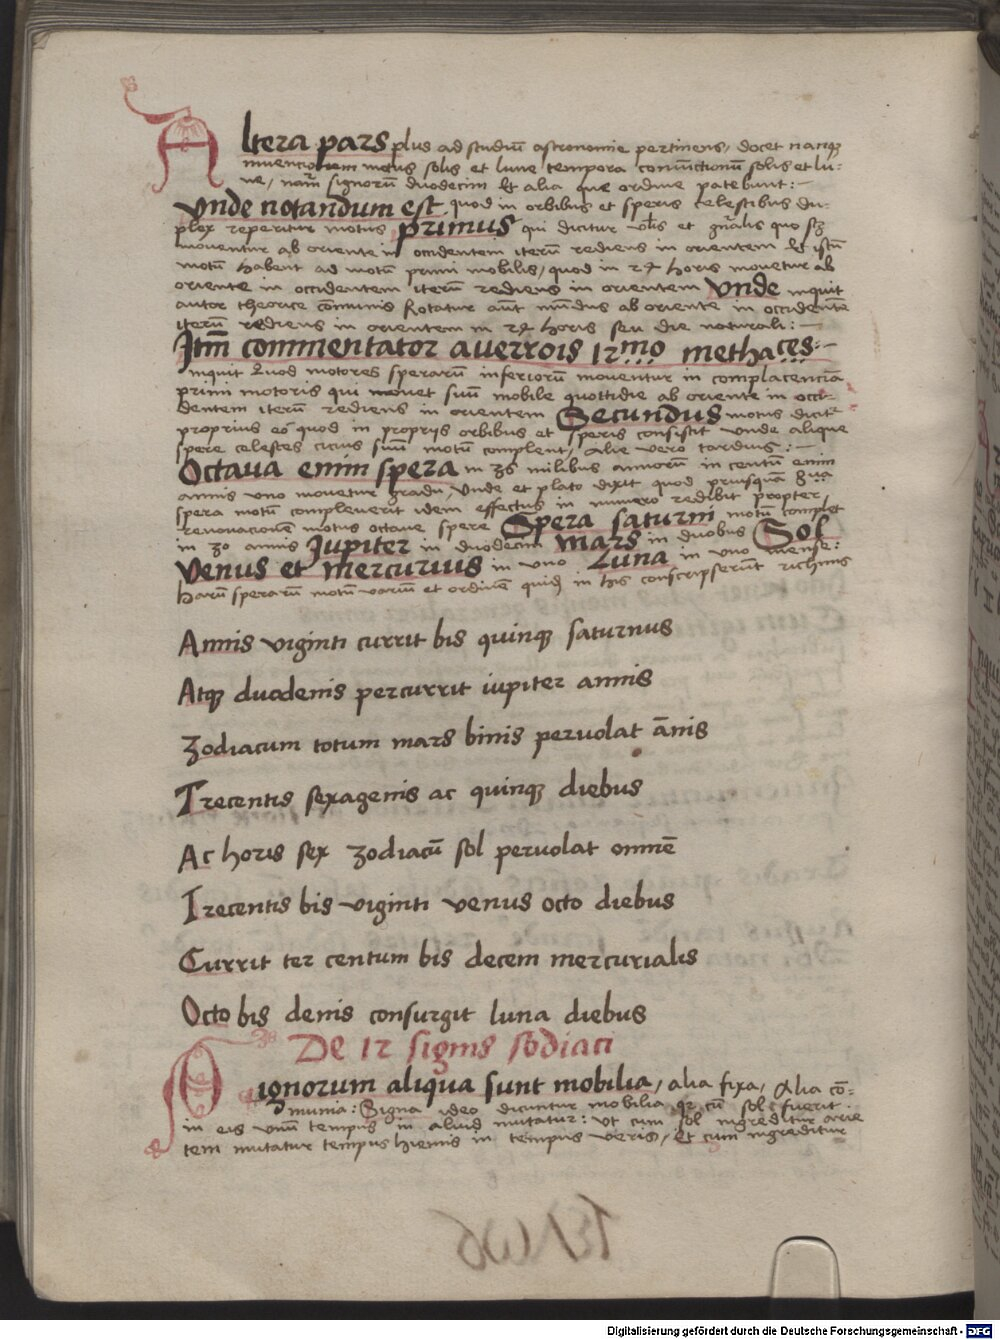 Altera pars plus ad studiũ astronomie pertinens, docet namqꝫ
invencionem motus solis et lune tempora coniũctionũ solis et lu-
ne, nam̃ signorũ duodecim et alia que ordine patebunt :-
Unde notandum est quod in orbibus et speris celestibus du-
plex reperitur motus primus qui dicitur et quo
mouentur ab oriente in occidentem iterũ rediens in orientem et istũ
motũ habent ad motũ primi mobilis, quod in 24 horis mouetur ab
oriente in occidentem iterũ rediens in orientem Unde inquit
autor theorice cõmunis Rotatur aũt mũdus ab oriente in occidentẽ
iterũ rediens in orientem in 24 horis seu die naturali :-
Itm̃ commentator averrois 12mo methaces:-
inquit Quod motores sperarũ inferiorũ mouentur in complacenciã
primi motoris qui mouet suũ mobile quottidie ab oriente in occi-
dentem iterũ rediens in orientem Secundus motus dicitr
proprius eo quod in proprijs orbibus et speris consistit unde alique
spere celestes cicius suũ motũ complent, Alie vero tardius :-
Octava enim spera in 36 milibus annorũ in centũ enim
annis uno mouetur gradu, Unde et plato dixit quod priusquã 8ua
spera motũ compleuerit idem effectus in numero redibit propter
renouacionem motus octaue spere Spera saturni motũ complet
in 30 annis Jupiter in duodecim Mars in duobus Sol
Venus et mercurius in uno Luna in uno mense:
Harũ sperarũ motũ variũ et ordinẽ quidã in his conscripserũt richmis
Annis viginti currit bis quinqꝫ saturnus
Atqꝫ duodenis percurrit iupiter annis
Zodiacum totum mars binis peruolat ãnis
Trecentis sexagenis ac quinqꝫ diebus
Ac horis sex zodiacũ sol peruolat omnẽ
Trecentis bis viginti venus octo diebus
Currit ter centum bis decem mercurialis
Octo bis denis consurgit luna diebus
De 12 signis sodiaci
Signorum aliqua sunt mobilia, alia fixa, Alia cõ-
munia: Signa ideo dicuntur mobilia qꝛ cũ sol fuerit
in eis unũ tempus in aliud mutatur: ut cum sol ingreditur arie
tem mutatur tempus hiemis in tempus veris, Et cum ingreditur
Digitalisierung gefördert durch die Deutsche Forschungsgemeinschaft - DFG